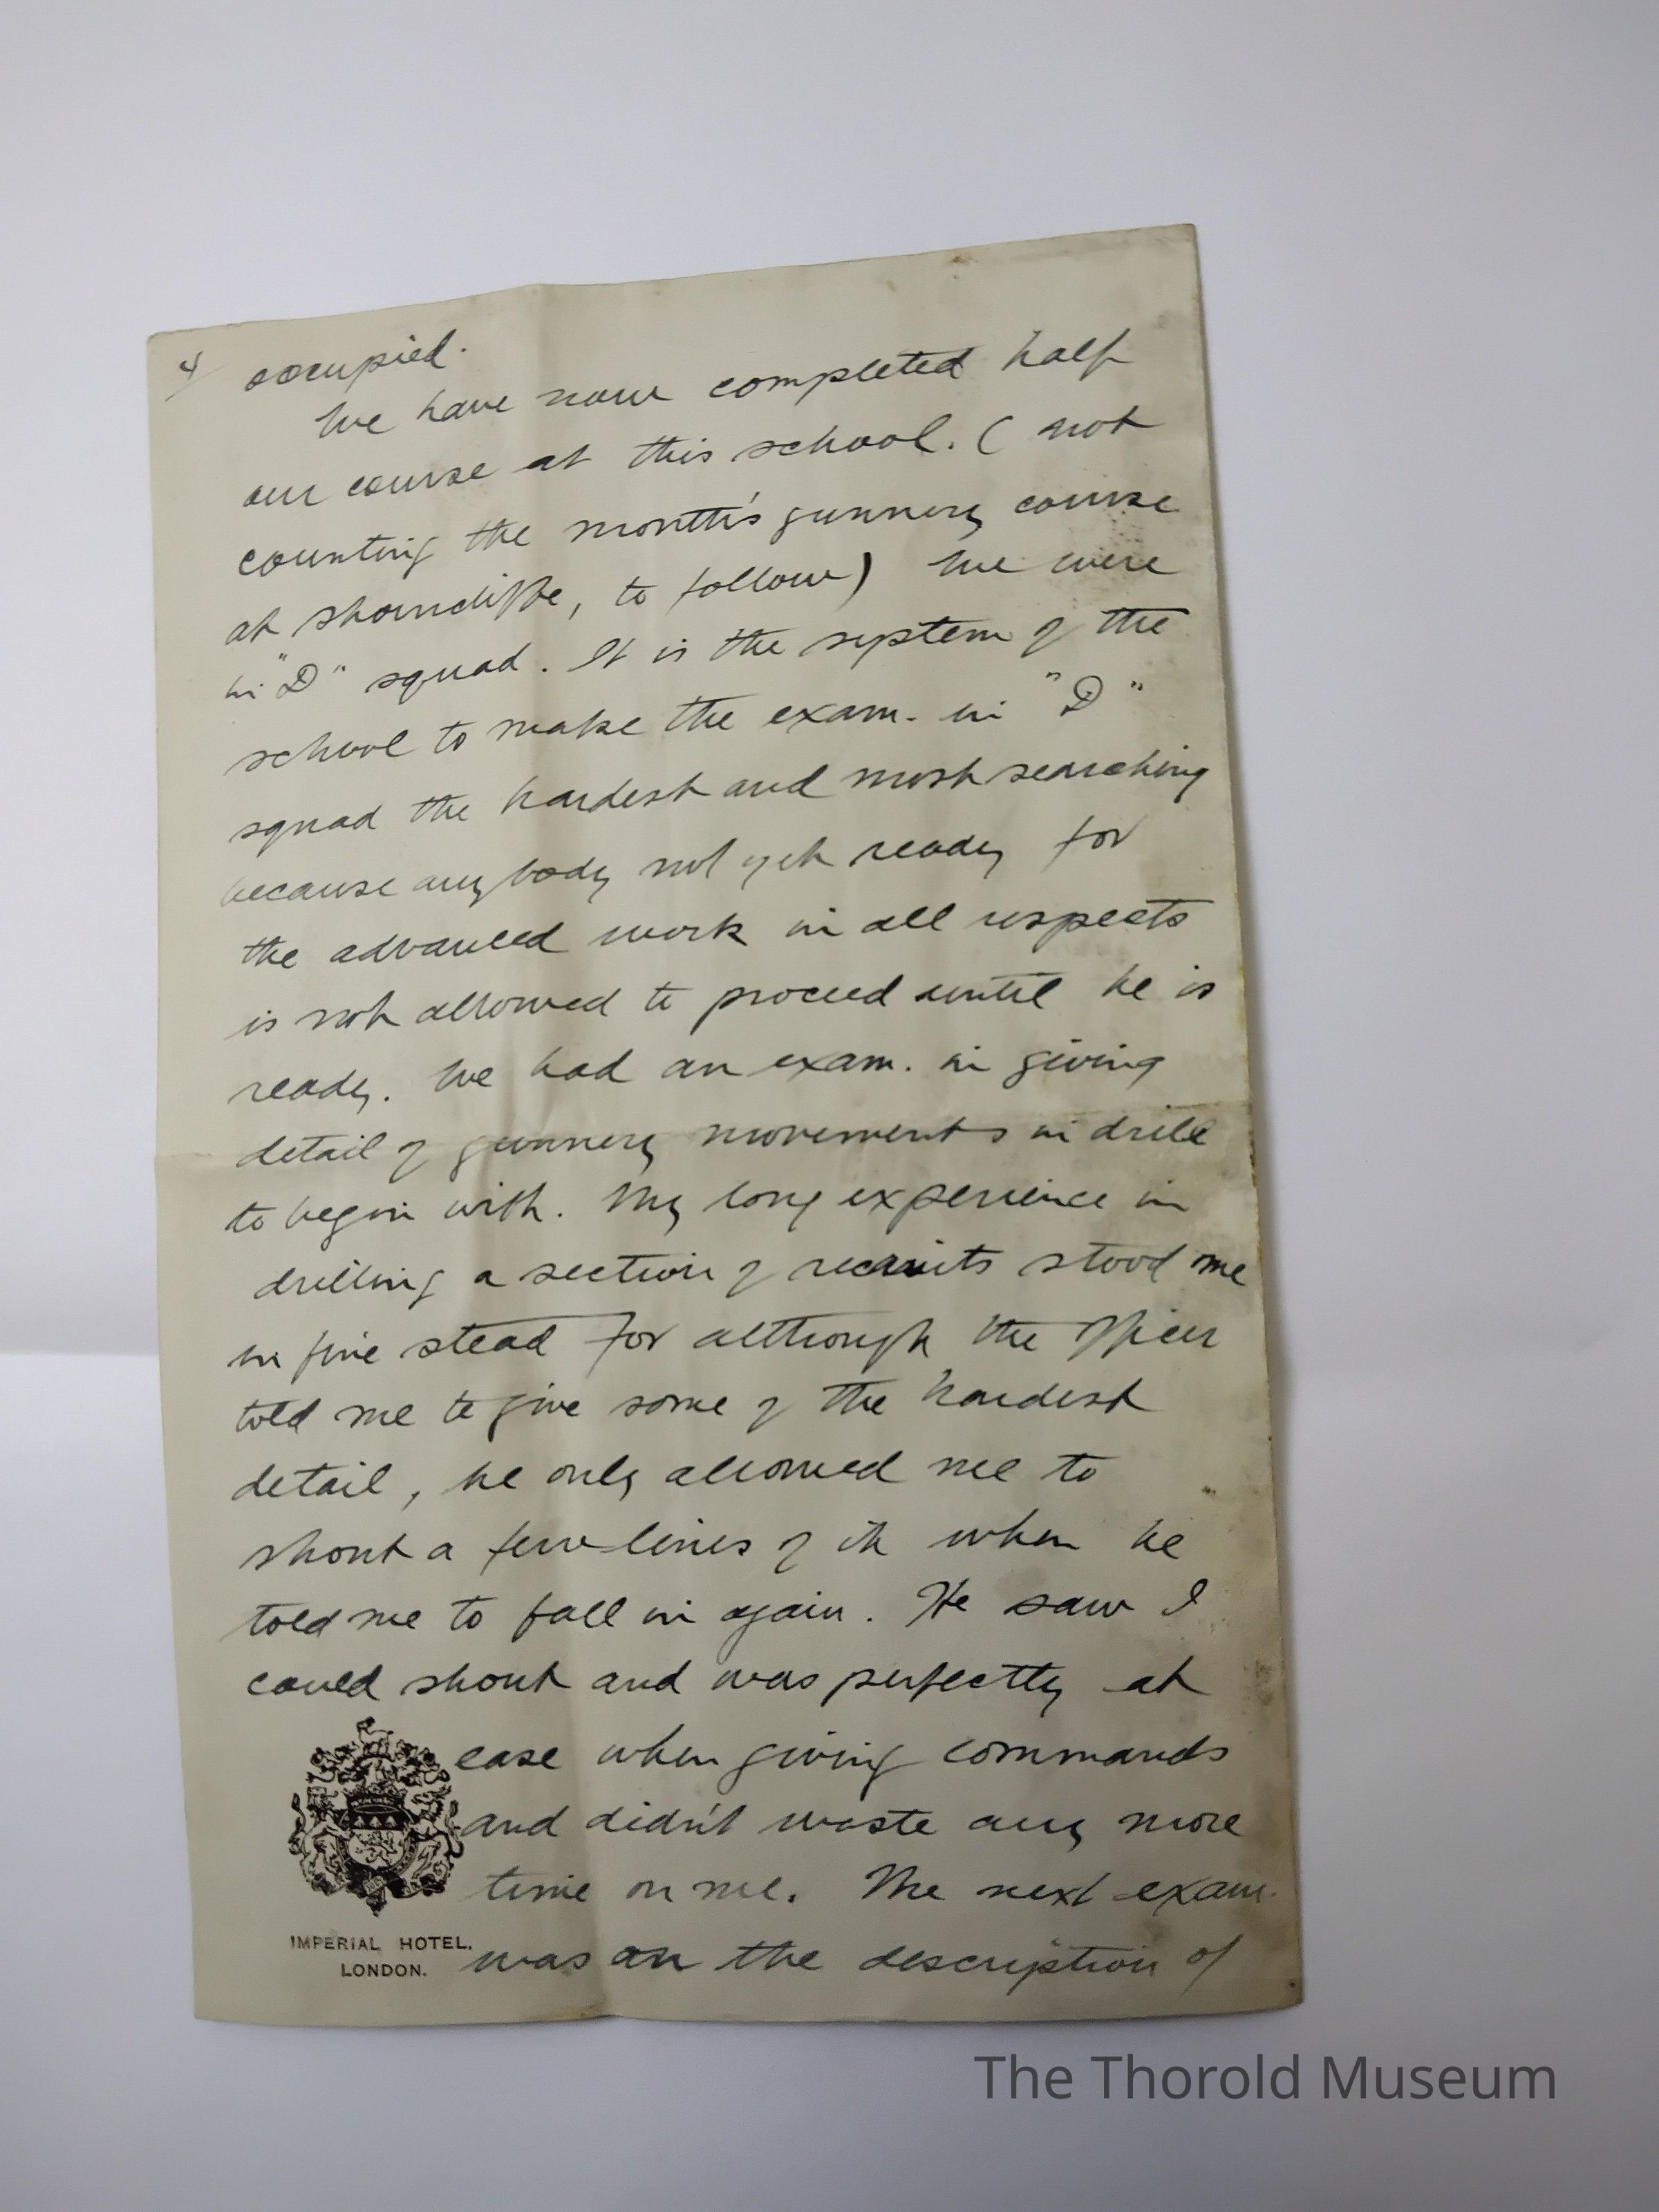 4/ occupied.
We have now completed half
our course at this school. (not
counting the month's gunnery course
at Shorncliffe, to follow) We were
in "D" squad. It is the system of the
school to make the exam. in "D"
squad the hardest and most searching
because anybody not yet ready for
the advanced work in all respects
is not allowed to proceed until he is
ready. We had an exam. in giving
detail of gunnery movements in drill
to begin with. My long experience in
drilling a section of recruits stood me
in fine stead for although the officer
told me to give some of the hardest
detail, he only allowed me to
shout a few lines of it when he
told me to fall in again. He saw I
could shout and was perfectly at
ease when giving commands
and didn't waste any more
time on me. The next exam.
was on the description of
IMPERIAL HOTEL.
LONDON.
The Thorold Museum